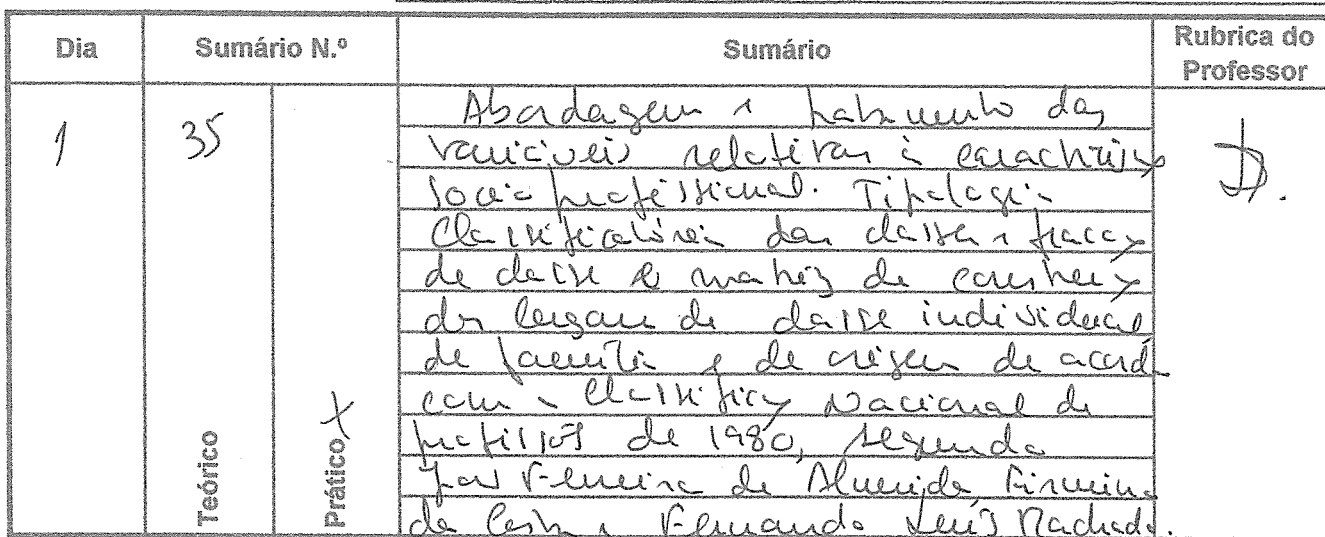 Dia Sumário N.º Sumário Rubrica do Professor
1 35 Abordagem e tratamento das
variáveis relativas à caracterização
socioprofissional. Tipologia
classificatória das classes e fracções
de classe e matriz de construção
dos lugares de classe individual
de família e de origem de acordo
com a Classificação Nacional de
profissões de 1980, segundo
João Ferreira de Almeida, Firmino
da Costa e Fernando Luís Machado.
Teórico
Prático X